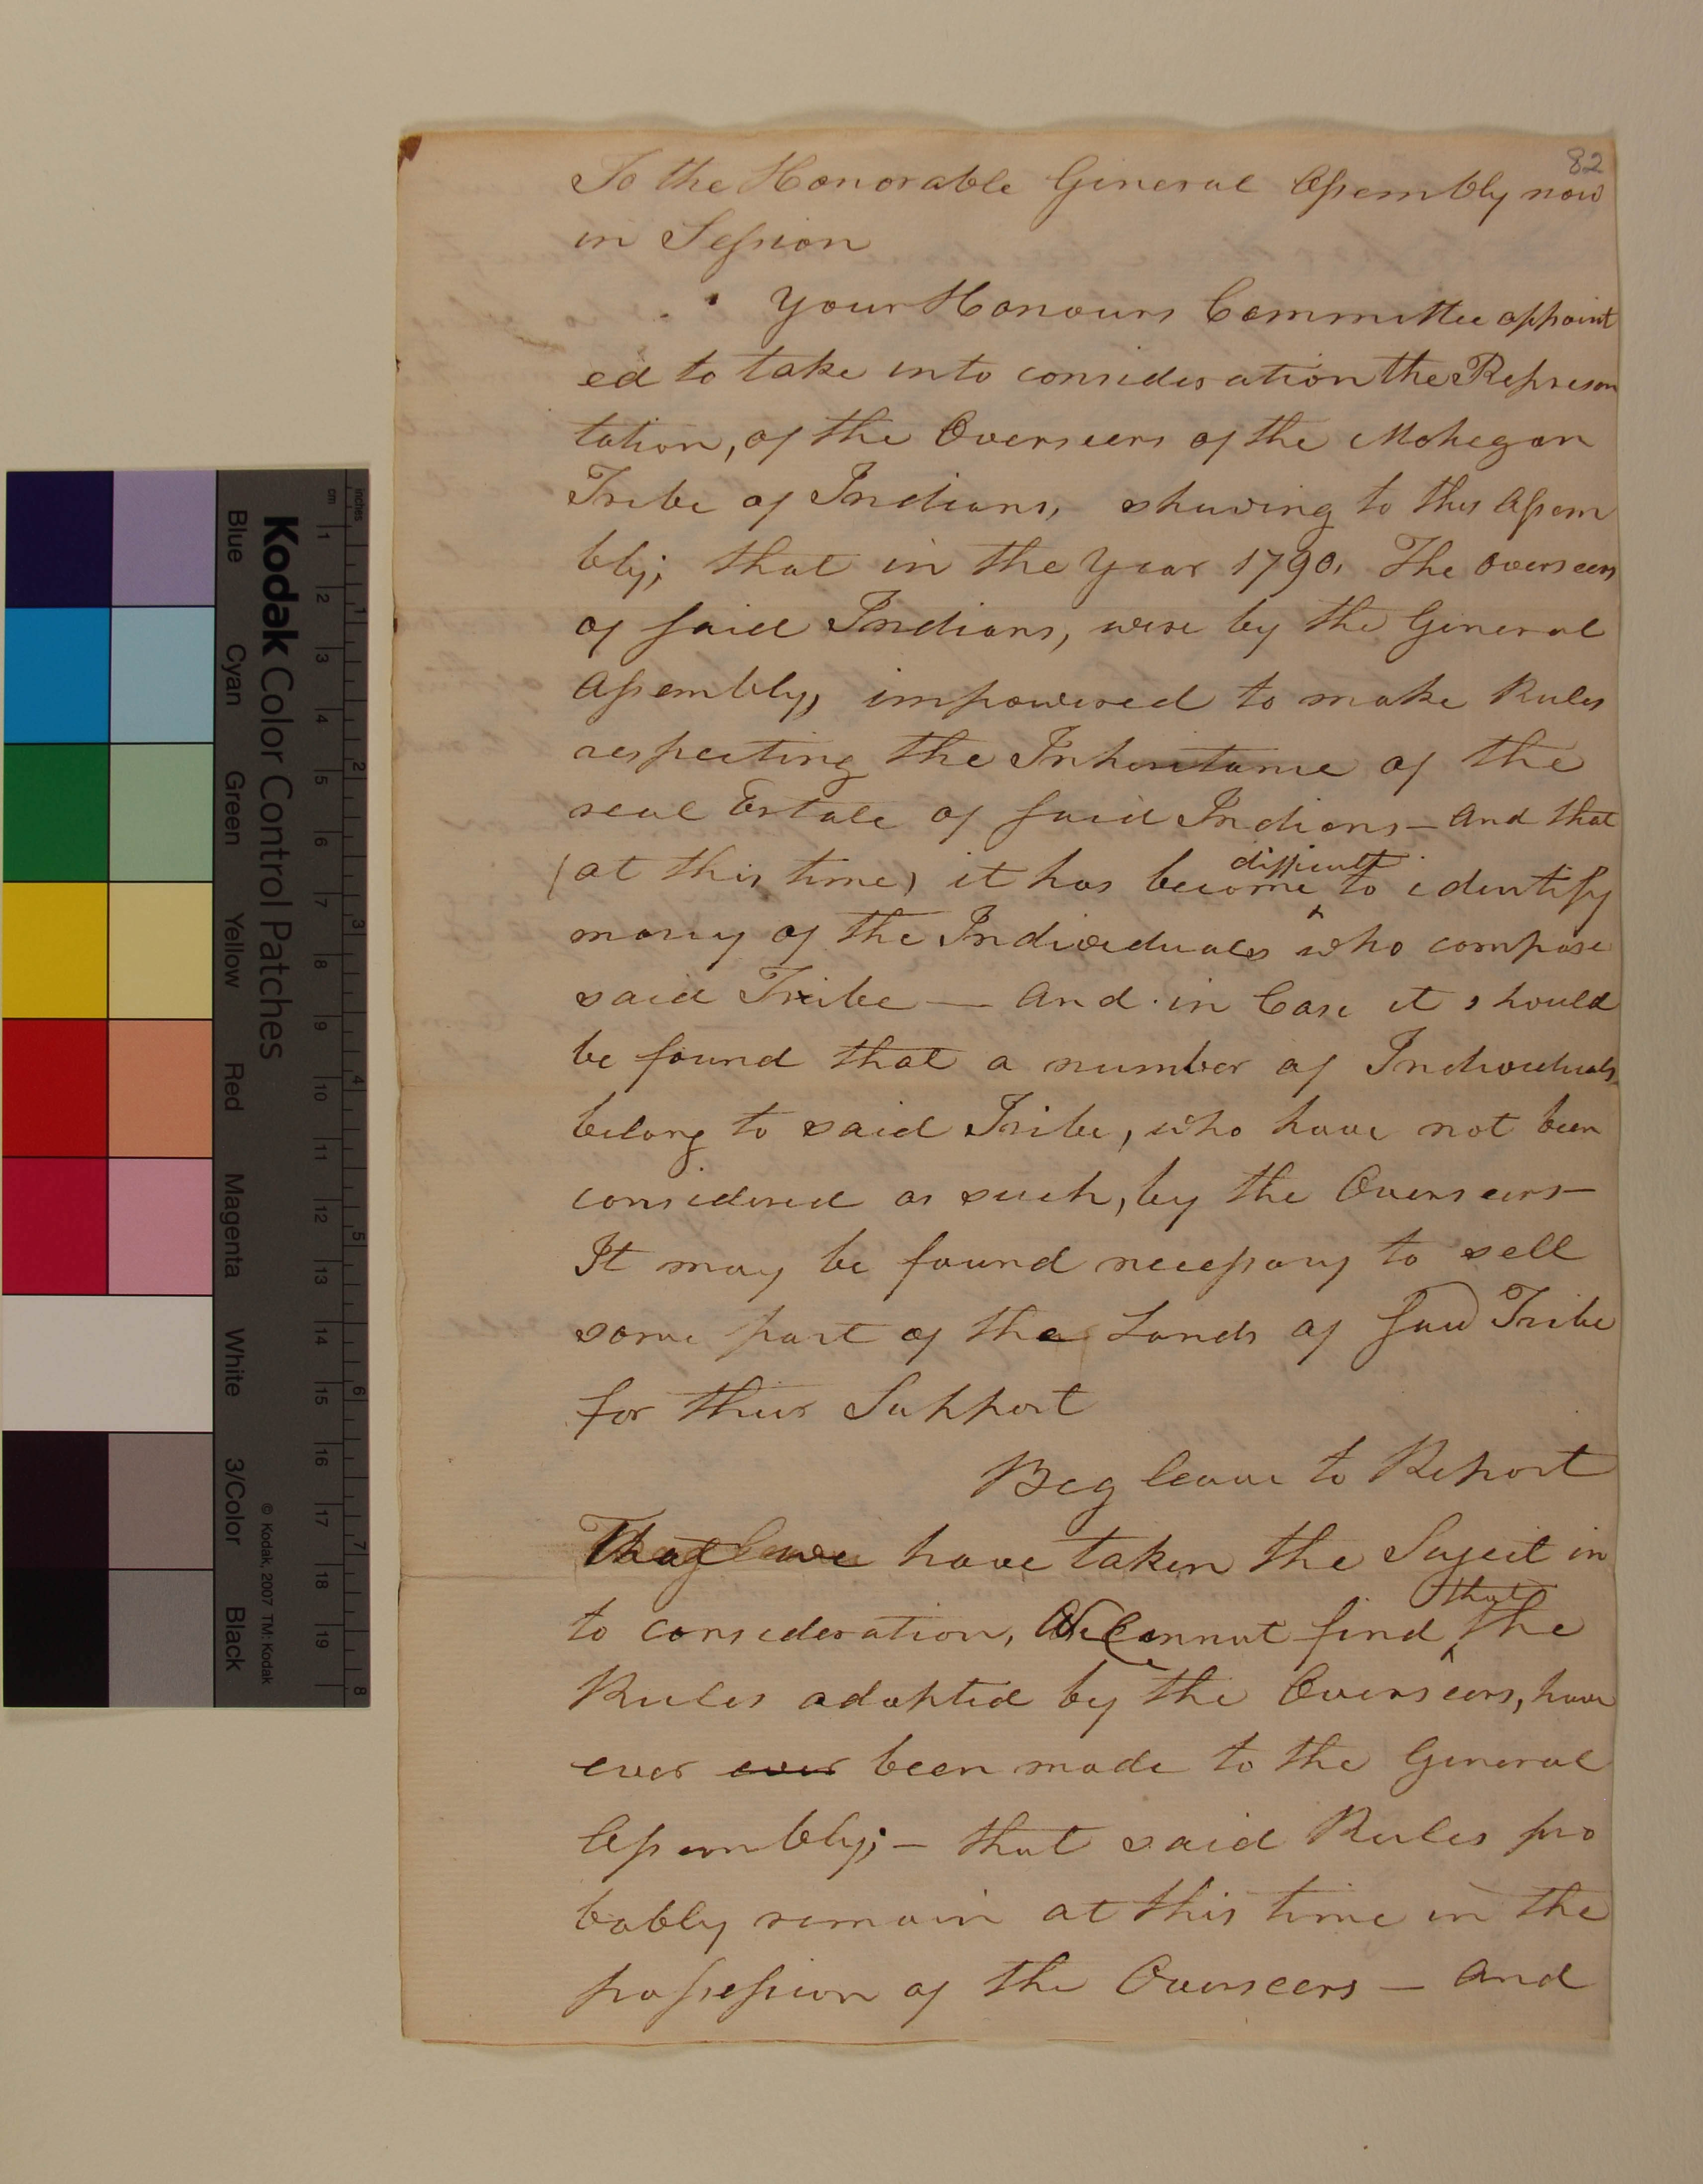 82
To the Honorable General Assembly now
in Session
Your Honours Committee appoint
ed to take into consideration the Represen
tation, of the Overseers of the Mohegan
Tribe of Indians, shuwing to this Assem
bly; that in the Year 1790, The Overseers
of said Indians, were by the General
Assembly, impowered to make Rules
respecting the Inheritance of the
real Estate of said Indians — and that
(at this time) it has become difficult to identify
many of the Individuals who compose
said Tribe — and in Case it should
be found that a number of Individuals
belong to said Tribe, who have not been
considered as such, by the Overseers —
It may be found necessary to sell
some part of the Lands of said Tribe
for their Support
Beg leave to Report
That we have taken the Suject in
to consideration, We Cannot find that the
Rules adopted by the Overseers, have
ever ever been made to the General
Assembly; — that said Rules pro
bably remain at this time in the
possession of the Overseers — and
Kodak Color Control Patches
Blue
Cyan
Green
Yellow
Red
Magenta
White
3/Color
Black
© Kodak, 2007 TM: Kodak
inches
1 2 3 4 5 6 7 8
cm
1 2 3 4 5 6 7 8 9 10 11 12 13 14 15 16 17 18 19